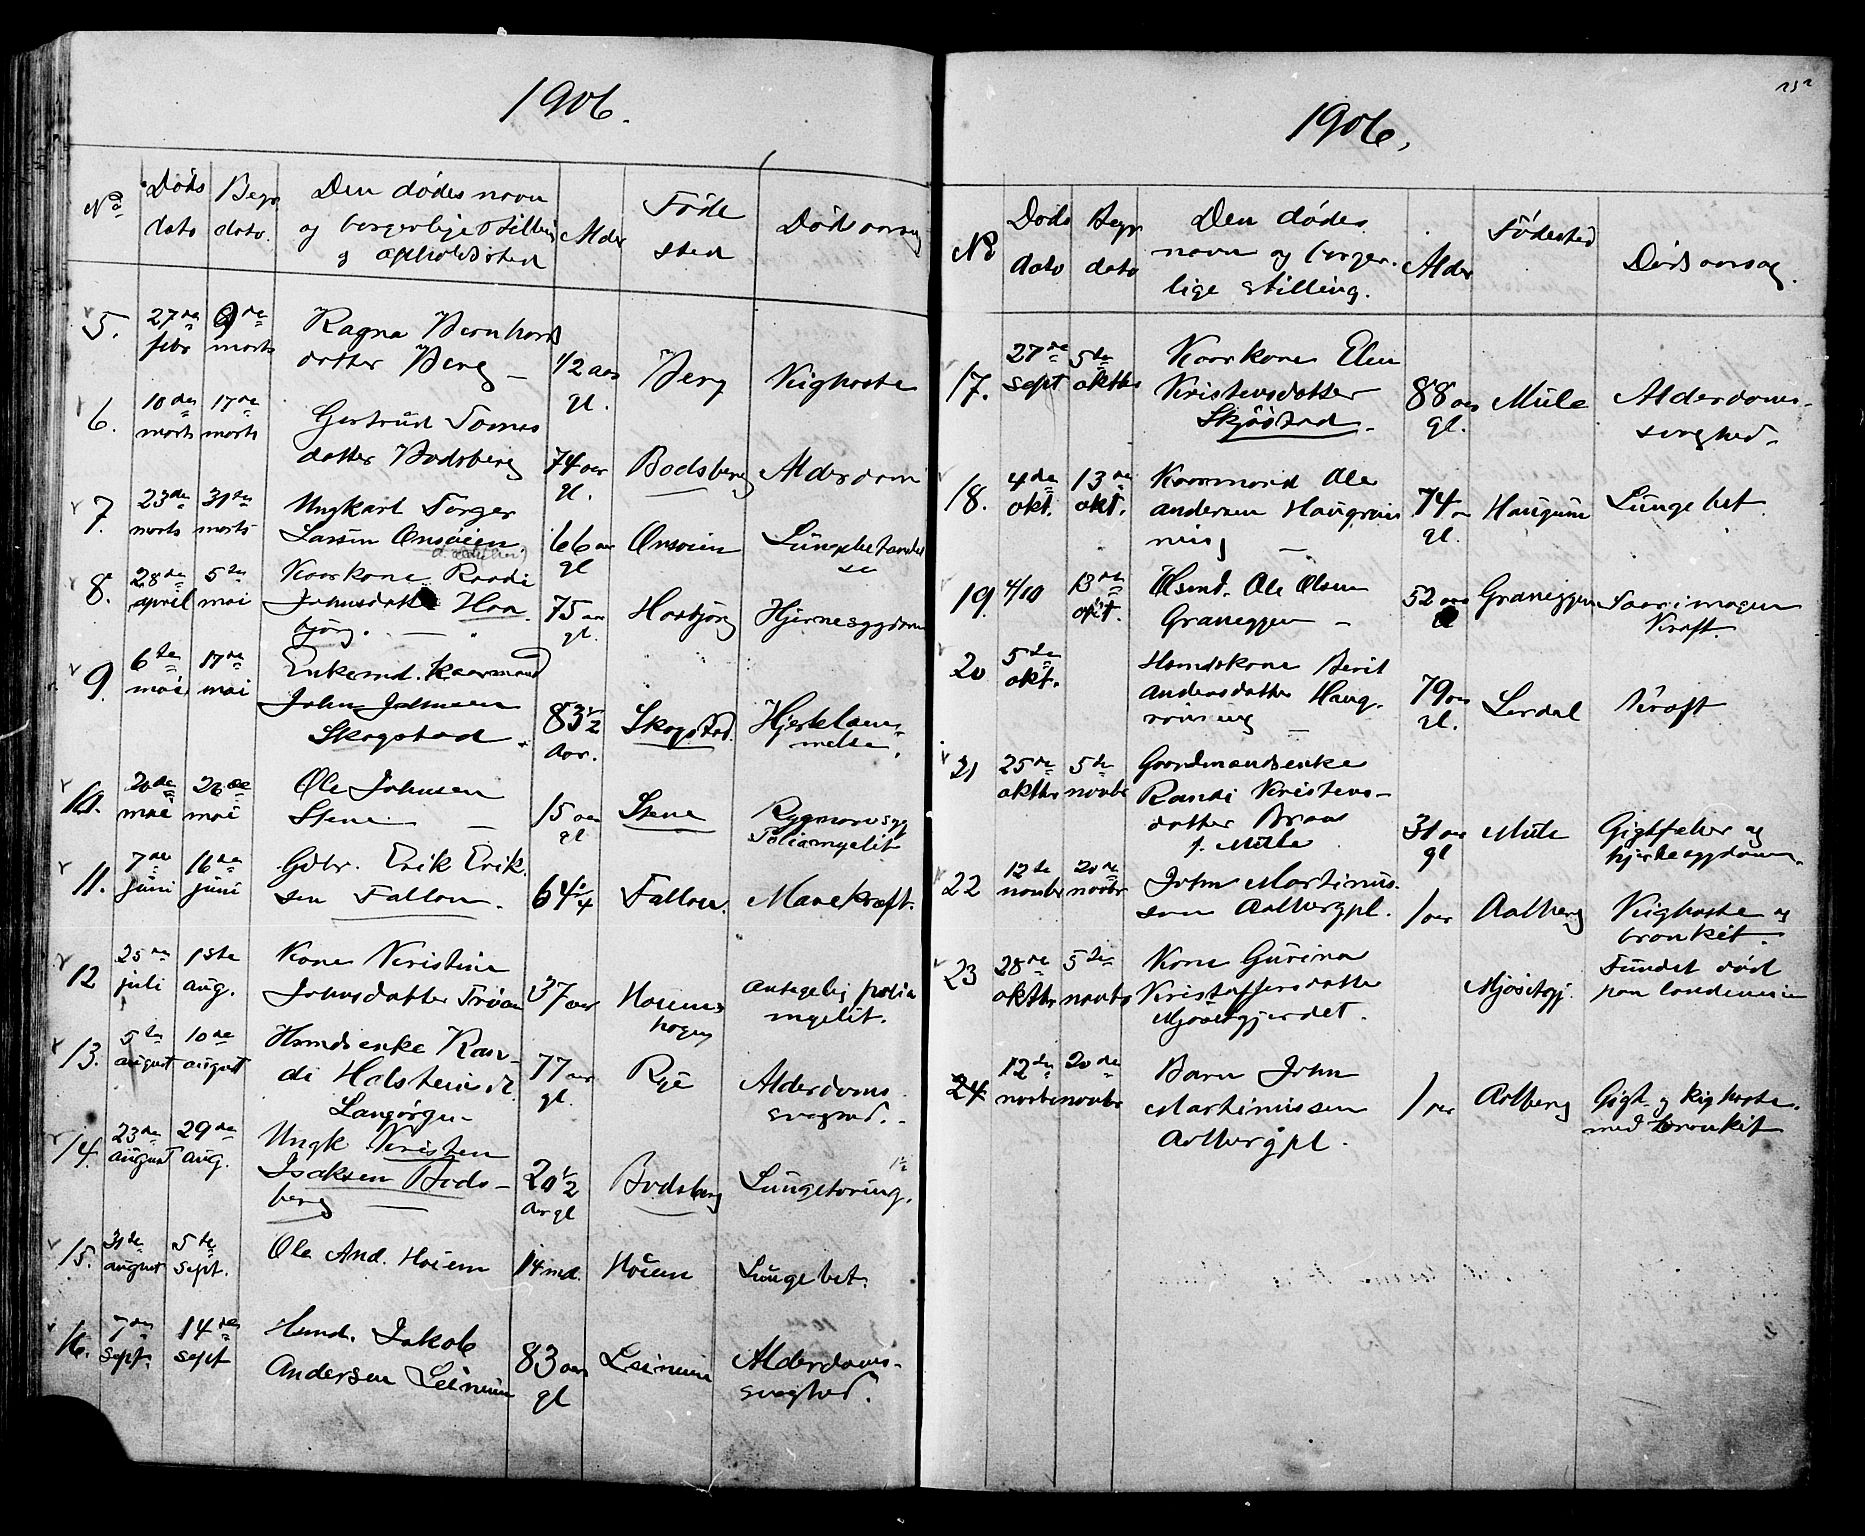 1906.
No
Døds
dato
Begr
dato.
Den dødes navn
og borgerlige stilling
og opholdssted
Alder
Føde
sted
Dødsaarsag
5.
27de
febr
9de
marts
Ragna Bernhards
datter Berg
1/2 aar
gl.
Berg
Kighoste
6.
10de
marts
17de
marts
Gertrud Tomas
datter Bodsberg
74 aar
gl.
Bodsberg
Alderdom
7.
23de
marts
31te
marts
Ungkarl Torger
Larsen Onsøien
66 aar
gl
Onsøien
Lungebetændel
se
8.
28de
april
5te
mai
Kaarkone Randi
Johnsdatter Haa
bjørg.
75 aar
gl.
Haabjørg
Hjernesygdom
9.
6te
mai
17de
mai
Enkemd. Kaarmand
John Johnsen
Skogstad.
83 1/2
Aar.
Skogstad.
Hjertelam-
melse.
10.
20de
mai
28de
mai
Ole Johnsen
Stene
15 aar
gl
Stene
Rygmarvsyg
Poliomyelit
11.
7de
juni
16de
juni
Gdbr. Erik Erik-
sen Fallon.
64 1/4
Fallon.
Mavekræft.
12
25de
juli
1ste
aug.
Kone Kristine
Johnsdatter Trøan
37 aar
Hoiems
hogen
Antagelig polio
myelit.
13.
5te
august
10de
august
Hmdsenke Ran-
di Holstensdt
Langørgen
77 aar
gl.
Rye
Alderdoms
svaghed.
14.
23de
august
29de
aug.
Ungk Kristen
Isaksen Bods-
berg
20 1/2
Aar gl
Bodsberg
Lungetæring.
15.
31te
august
5te
sept.
Ole And. Hoiem
14 md.
Hoiem
Lungebet.
16.
7de
sept.
14de
sept
Hmd. Jakob
Andersen Leinum
83 aar
gl
Leinum
Alderdoms-
svaghed.
1906.
No
Døds
dato
Begr
dato
Den dødes
navn og borger-
lige stilling.
Alder
Fødested
Dødsaarsag.
17.
27de
sept
5te
oktbr
Kaarkone Elen
Kristensdatter
Skjøstad.
88 aar
gl.
Mule
Alderdoms-
svaghed.
18.
4de
okt.
13de
okt.
Kaarmand Ole
Andersen Haugrøn
ning
74
gl.
Haugum
Lungebet.
19.
4/10
13de
okt.
Hsmd. Ole Olsen
Graneggen
52 aar
Graneggen
Saar i magen
Kræft.
20
5te
okt.
Hsmdskone Berit
Andersdatter Haug-
rønning
79 aar
gl.
Lerdal
Kræft
21
25de
oktbr
5te
novbr
Gaardmandsenke
Randi Kristens-
datter Braa
f. Mule
31 aar
gl
Mule
Gigtfeber og
hjertesygdom.
22
12te
novbr
20de
novbr
John Martinus-
sen Aalbergpl.
1 aar
Aalberg
Kighoste og
bronkit.
23
28de
oktbr
5te
novbr
Kone Gurina
Kristoffersdatter
Mjøsetgjerdet.
Mjøsetgj.
Fundet død
paa landeveien
24.
12te
novbr
20de
novbr
Barn John
Martinussen
Aalbergpl.
1 aar
Aalberg
Gigt og kighoste
med bronkit